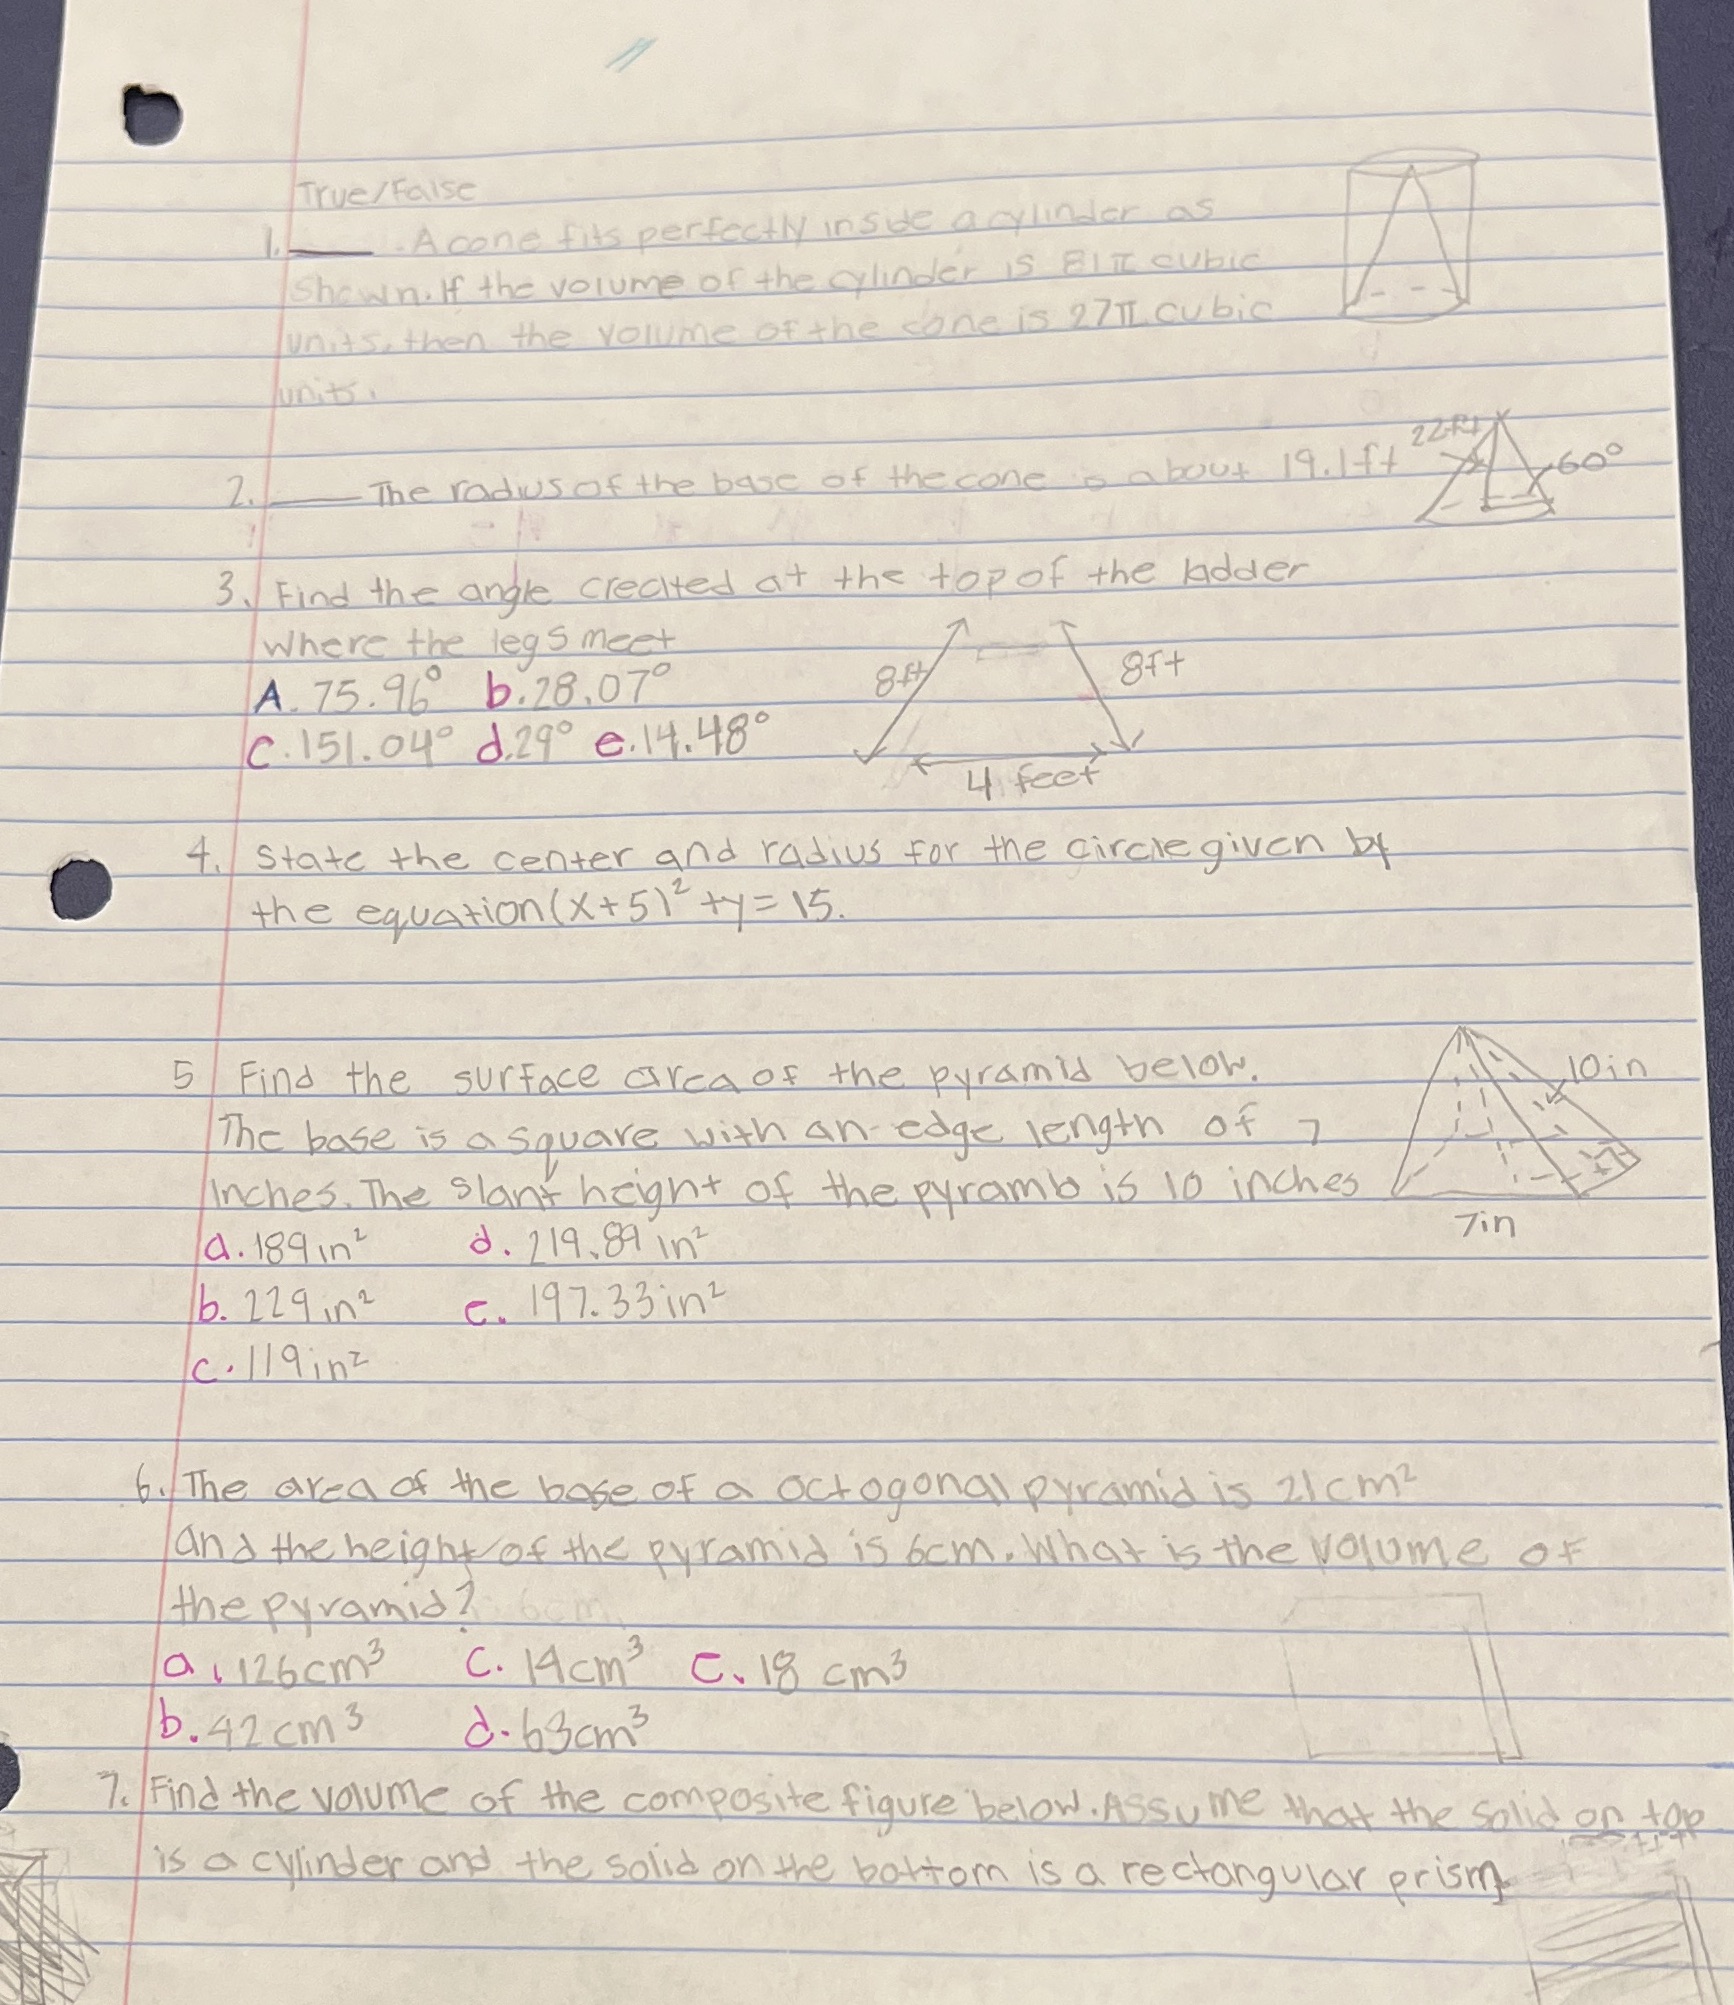 True/False
1. ____ . A cone fits perfectly inside a cylinder as
shown. If the volume of the cylinder is 81π cubic
units, then the volume of the cone is 27π cubic
units.
22ft
60°
2. ____ The radius of the base of the cone is about 19.1ft
3. Find the angle created at the top of the ladder
where the legs meet
8ft
8ft
A. 75.96° b. 28.07°
C. 151.04° d. 29° e. 14.48°
4 feet
4. State the center and radius for the circle given by
the equation (x+5)² + y = 15.
5 Find the surface area of the pyramid below.
10in
The base is a square with an edge length of 7
inches. The slant height of the pyramid is 10 inches
7in
a. 189in² d. 219.89 in²
b. 229in² e. 197.33in²
c. 119in²
6. The area of the base of a octogonal pyramid is 21cm²
and the height of the pyramid is 6cm. What is the volume of
the pyramid? 6cm
a. 126cm³ c. 14cm³ e. 18 cm³
b. 42cm³ d. 63cm³
7. Find the volume of the composite figure below. Assume that the solid on top
is a cylinder and the solid on the bottom is a rectangular prism